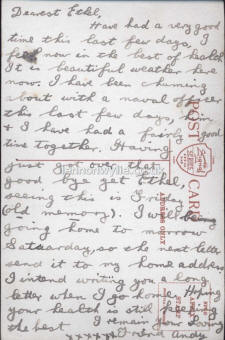 Dearest Ethel,
Have had a very good
time this last few days, I
feel now in the best of health
It is beautiful weather here
now. I have been chuming
about with a naval officer
this last few days,
& I have had a fairly good
time together. Having
just got over that
good bye yet Ethel,
seeing this is Friday
(old memory). I will being
going home to morrow
Sataurday, so the next letter
send it to my home address
I intend writing you a long
letter when I go home. Hoping
your health is still
the best I remain your loving
xxxxxx Friend Andy
POST CARD
ADDRESS ONLY
STAMP